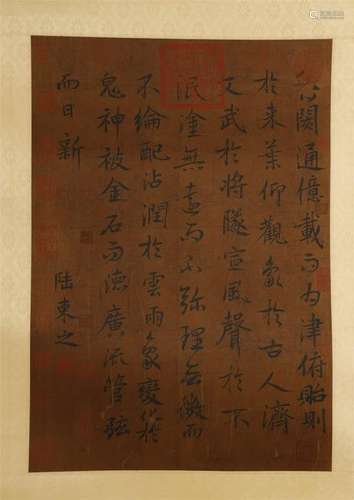 公閡通億載而為津俯貽則
於来葉仰觀象於古人濟
文武於將墜宣風聲於不
泯塗無遠而不弥理無微而
不綸配沾潤於雲雨象變於
鬼神被金石而德廣流管弦
而日新
陸柬之